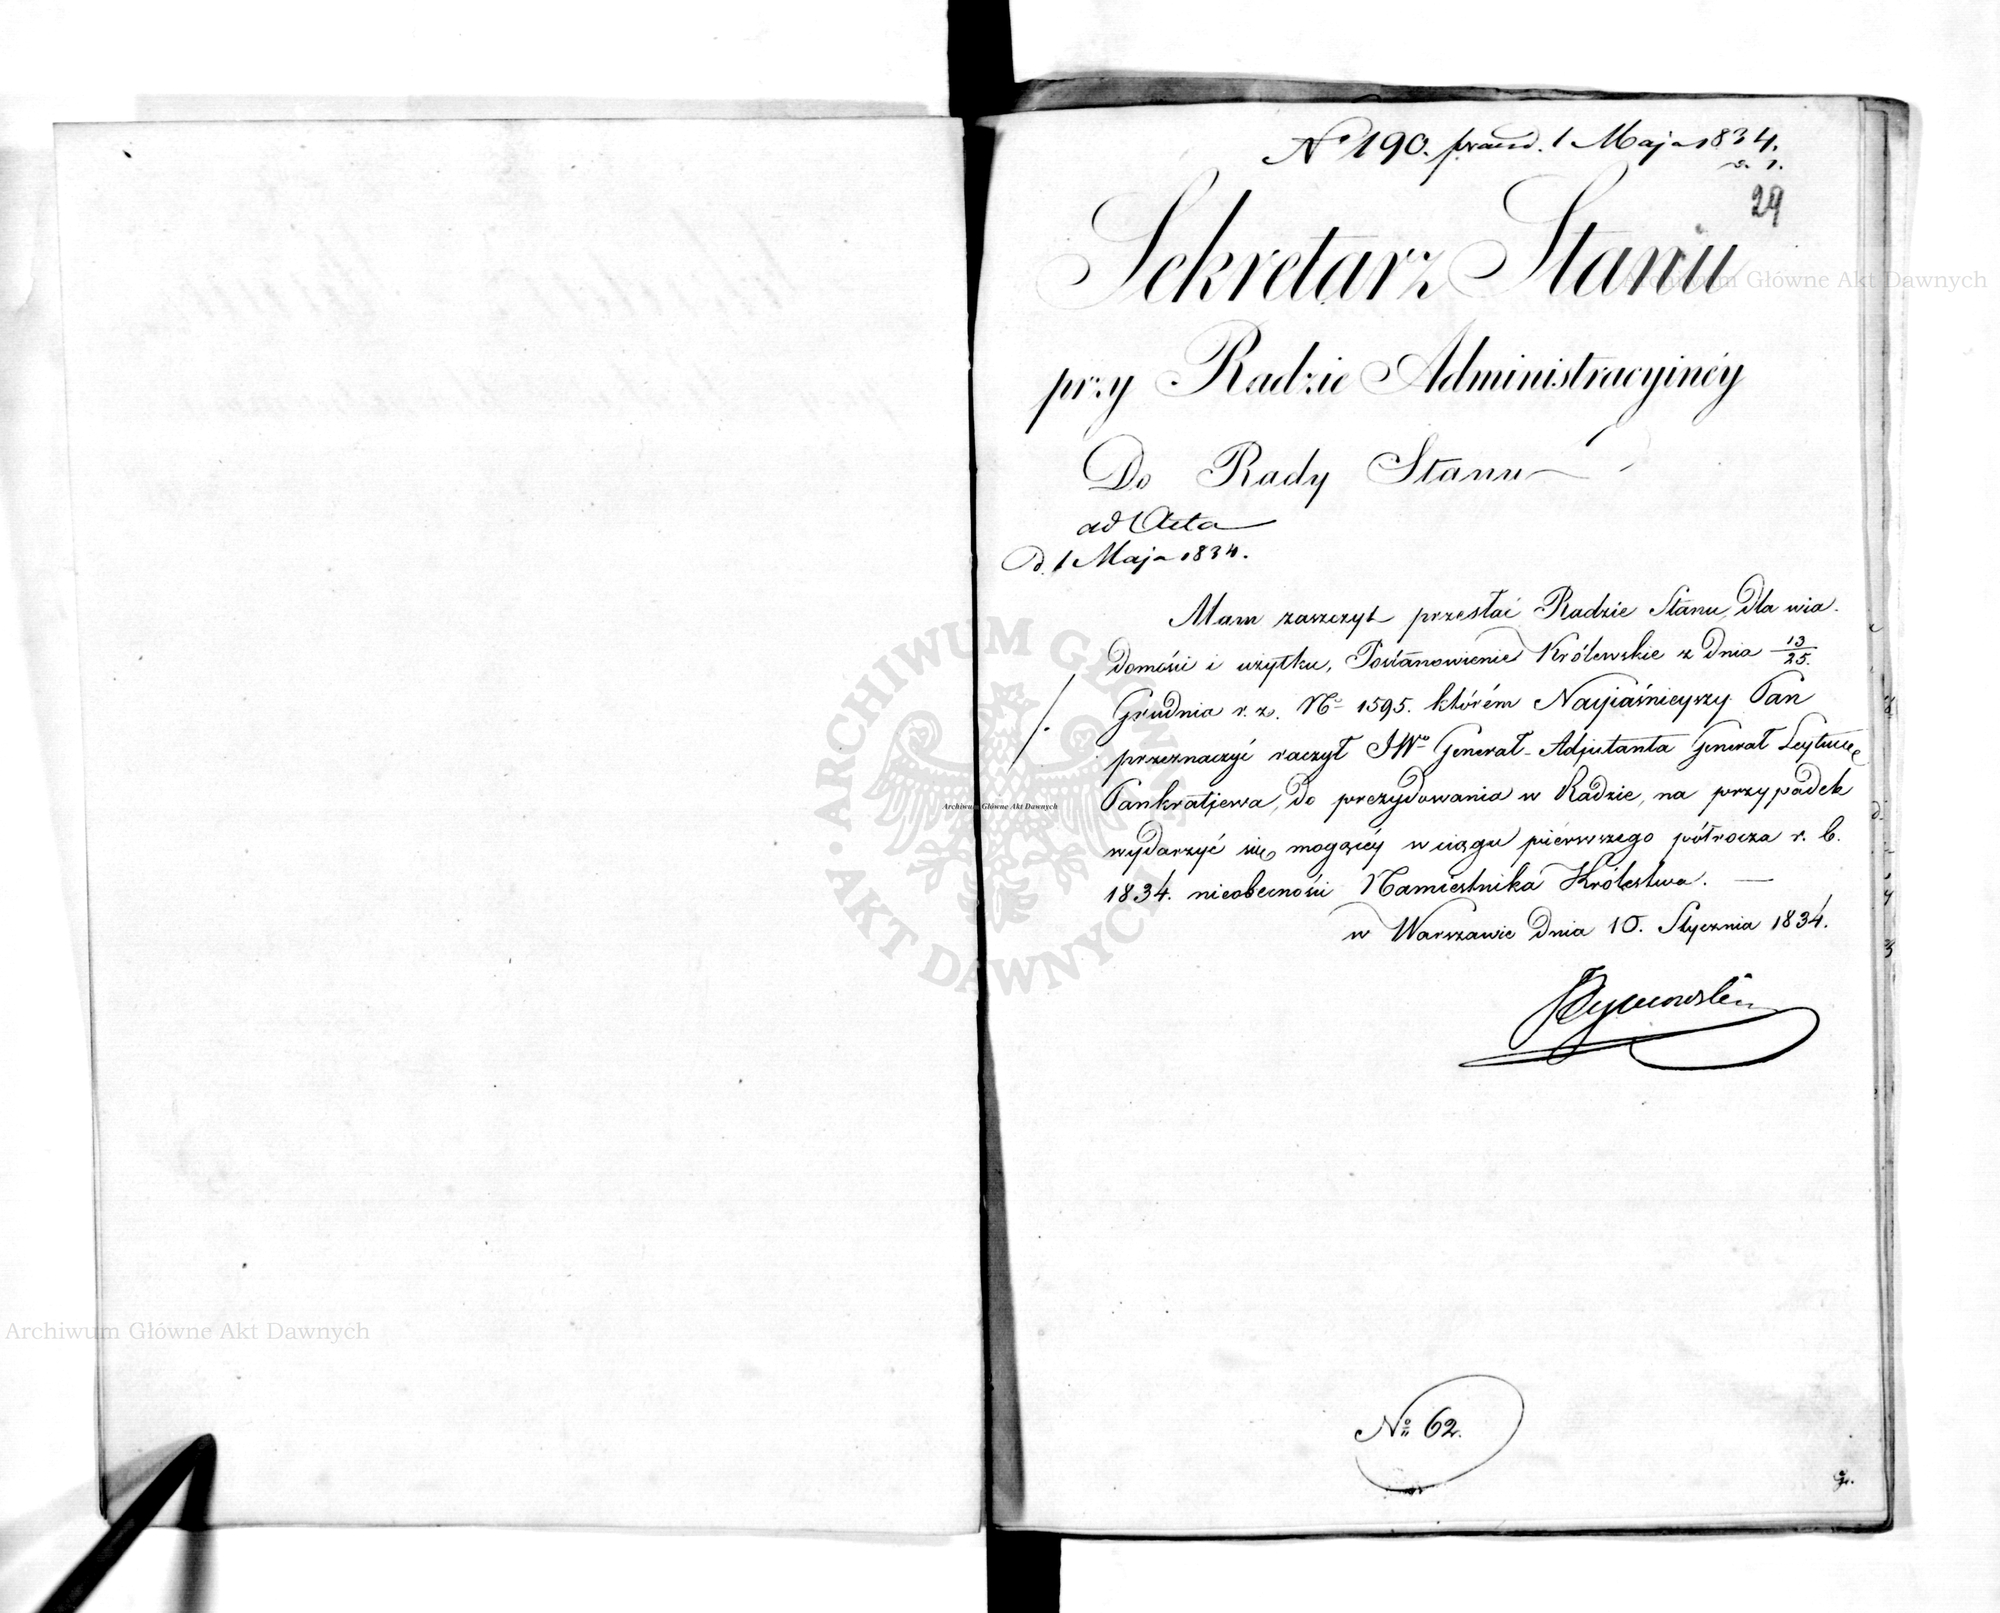 Nº 190. praes. 1 Maja 1834.
29
Sekretarz Stanu
przy Radzie Administracyinéy
Do Rady Stanu
ad Acta
d. 1 Maja 1834.
Mam zaszczyt przesłać Radzie Stanu, dla wia-
domości i użytku, Postanowienie Królewskie z dnia 13/25.
Grudnia r. z. Nº 1595. którém Nayiaśnieyszy Pan
przeznaczyć raczył JWº Generał-Adjutanta Generał Leytue
Pankratjewa, do prezydowania w Radzie, na przypadek
wydarzyć się mogącéy w ciągu pierwszego półrocza r. b.
1834. nieobecności Namiestnika Królestwa. —
w Warszawie dnia 10. Stycznia 1834.
Nº 62.
Archiwum Główne Akt Dawnych
Archiwum Główne Akt Dawnych
Archiwum Główne Akt Dawnych
ARCHIWUM GŁÓWNE · AKT DAWNYCH ·